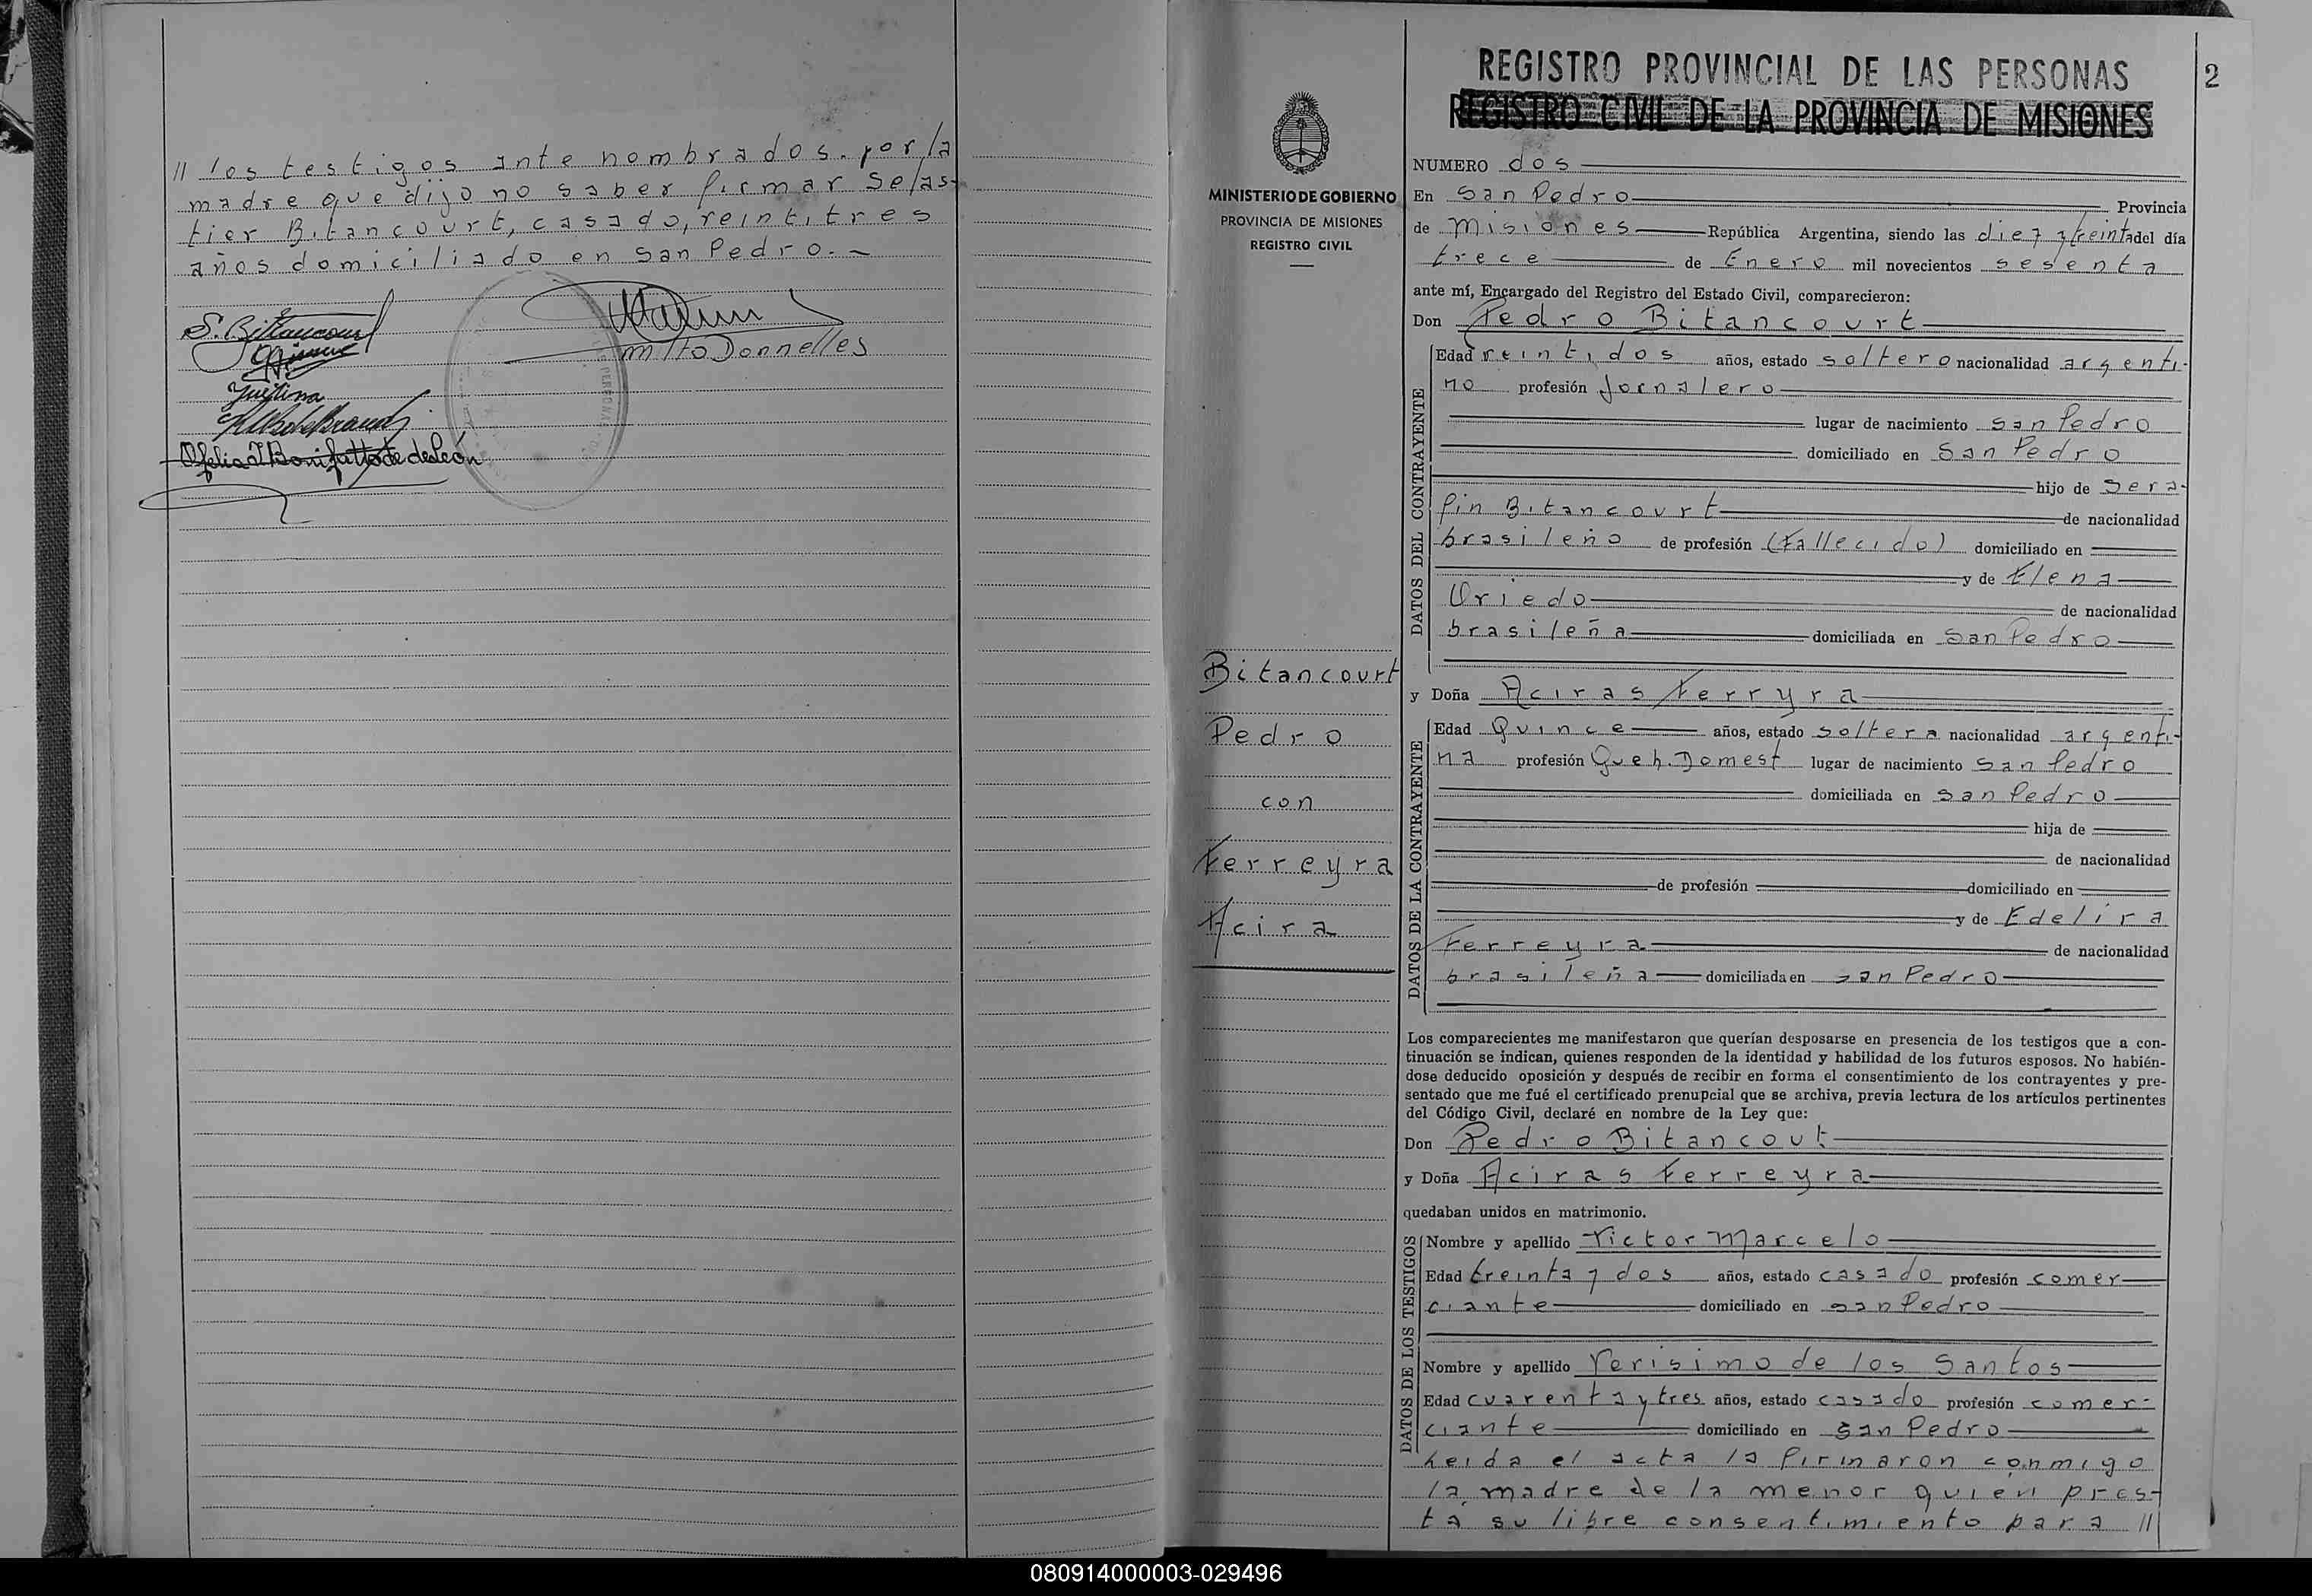 // los testigos ante nombrados. por la
madre que dijo no saber firmar Selas-
tier Bitancourt, casado, reintitres
años domiciliado en San Pedro.-
S. Bittancourt
MiltoDonnelles
Justina
Ofelia T Bonifatto de de León
REGISTRO PROVINCIAL DE LAS PERSONAS
2
REGISTRO CIVIL DE LA PROVINCIA DE MISIONES
MINISTERIO DE GOBIERNO
PROVINCIA DE MISIONES
REGISTRO CIVIL
NUMERO dos
En San Pedro Provincia
de Misiones República Argentina, siendo las diez y treinta del día
trece de Enero mil novecientos sesenta
ante mí, Encargado del Registro del Estado Civil, comparecieron:
Don Pedro Bitancourt
DATOS DEL CONTRAYENTE
Edad reintidos años, estado soltero nacionalidad argenti-
no profesión Jornalero
lugar de nacimiento San Pedro
domiciliado en San Pedro
hijo de Sera-
fin Bitancourt de nacionalidad
brasileño de profesión (Fallecido) domiciliado en
y de Elena
Oriedo de nacionalidad
brasileña domiciliada en San Pedro
Bitancourt
Pedro
con
Ferreyra
Acira
y Doña Aciras Ferryra
DATOS DE LA CONTRAYENTE
Edad Quince años, estado soltera nacionalidad argenti-
na profesión Queh. Domest lugar de nacimiento San Pedro
domiciliada en San Pedro
hija de
de nacionalidad
de profesión domiciliado en
y de Edelira
Ferreyra de nacionalidad
brasileña domiciliada en San Pedro
Los comparecientes me manifestaron que querían desposarse en presencia de los testigos que a con-
tinuación se indican, quienes responden de la identidad y habilidad de los futuros esposos. No habién-
dose deducido oposición y después de recibir en forma el consentimiento de los contrayentes y pre-
sentado que me fué el certificado prenupcial que se archiva, previa lectura de los artículos pertinentes
del Código Civil, declaré en nombre de la Ley que:
Don Pedro Bitancout
y Doña Aciras Ferreyra
quedaban unidos en matrimonio.
DATOS DE LOS TESTIGOS
Nombre y apellido Victor Marcelo
Edad treinta y dos años, estado casado profesión comer
ciante domiciliado en San Pedro
Nombre y apellido Verisimo de los Santos
Edad cuarenta y tres años, estado casado profesión comer-
ciante domiciliado en San Pedro
Leida el acta la firmaron conmigo
la madre de la menor quien pres-
ta su libre consentimiento para //
080914000003-029496